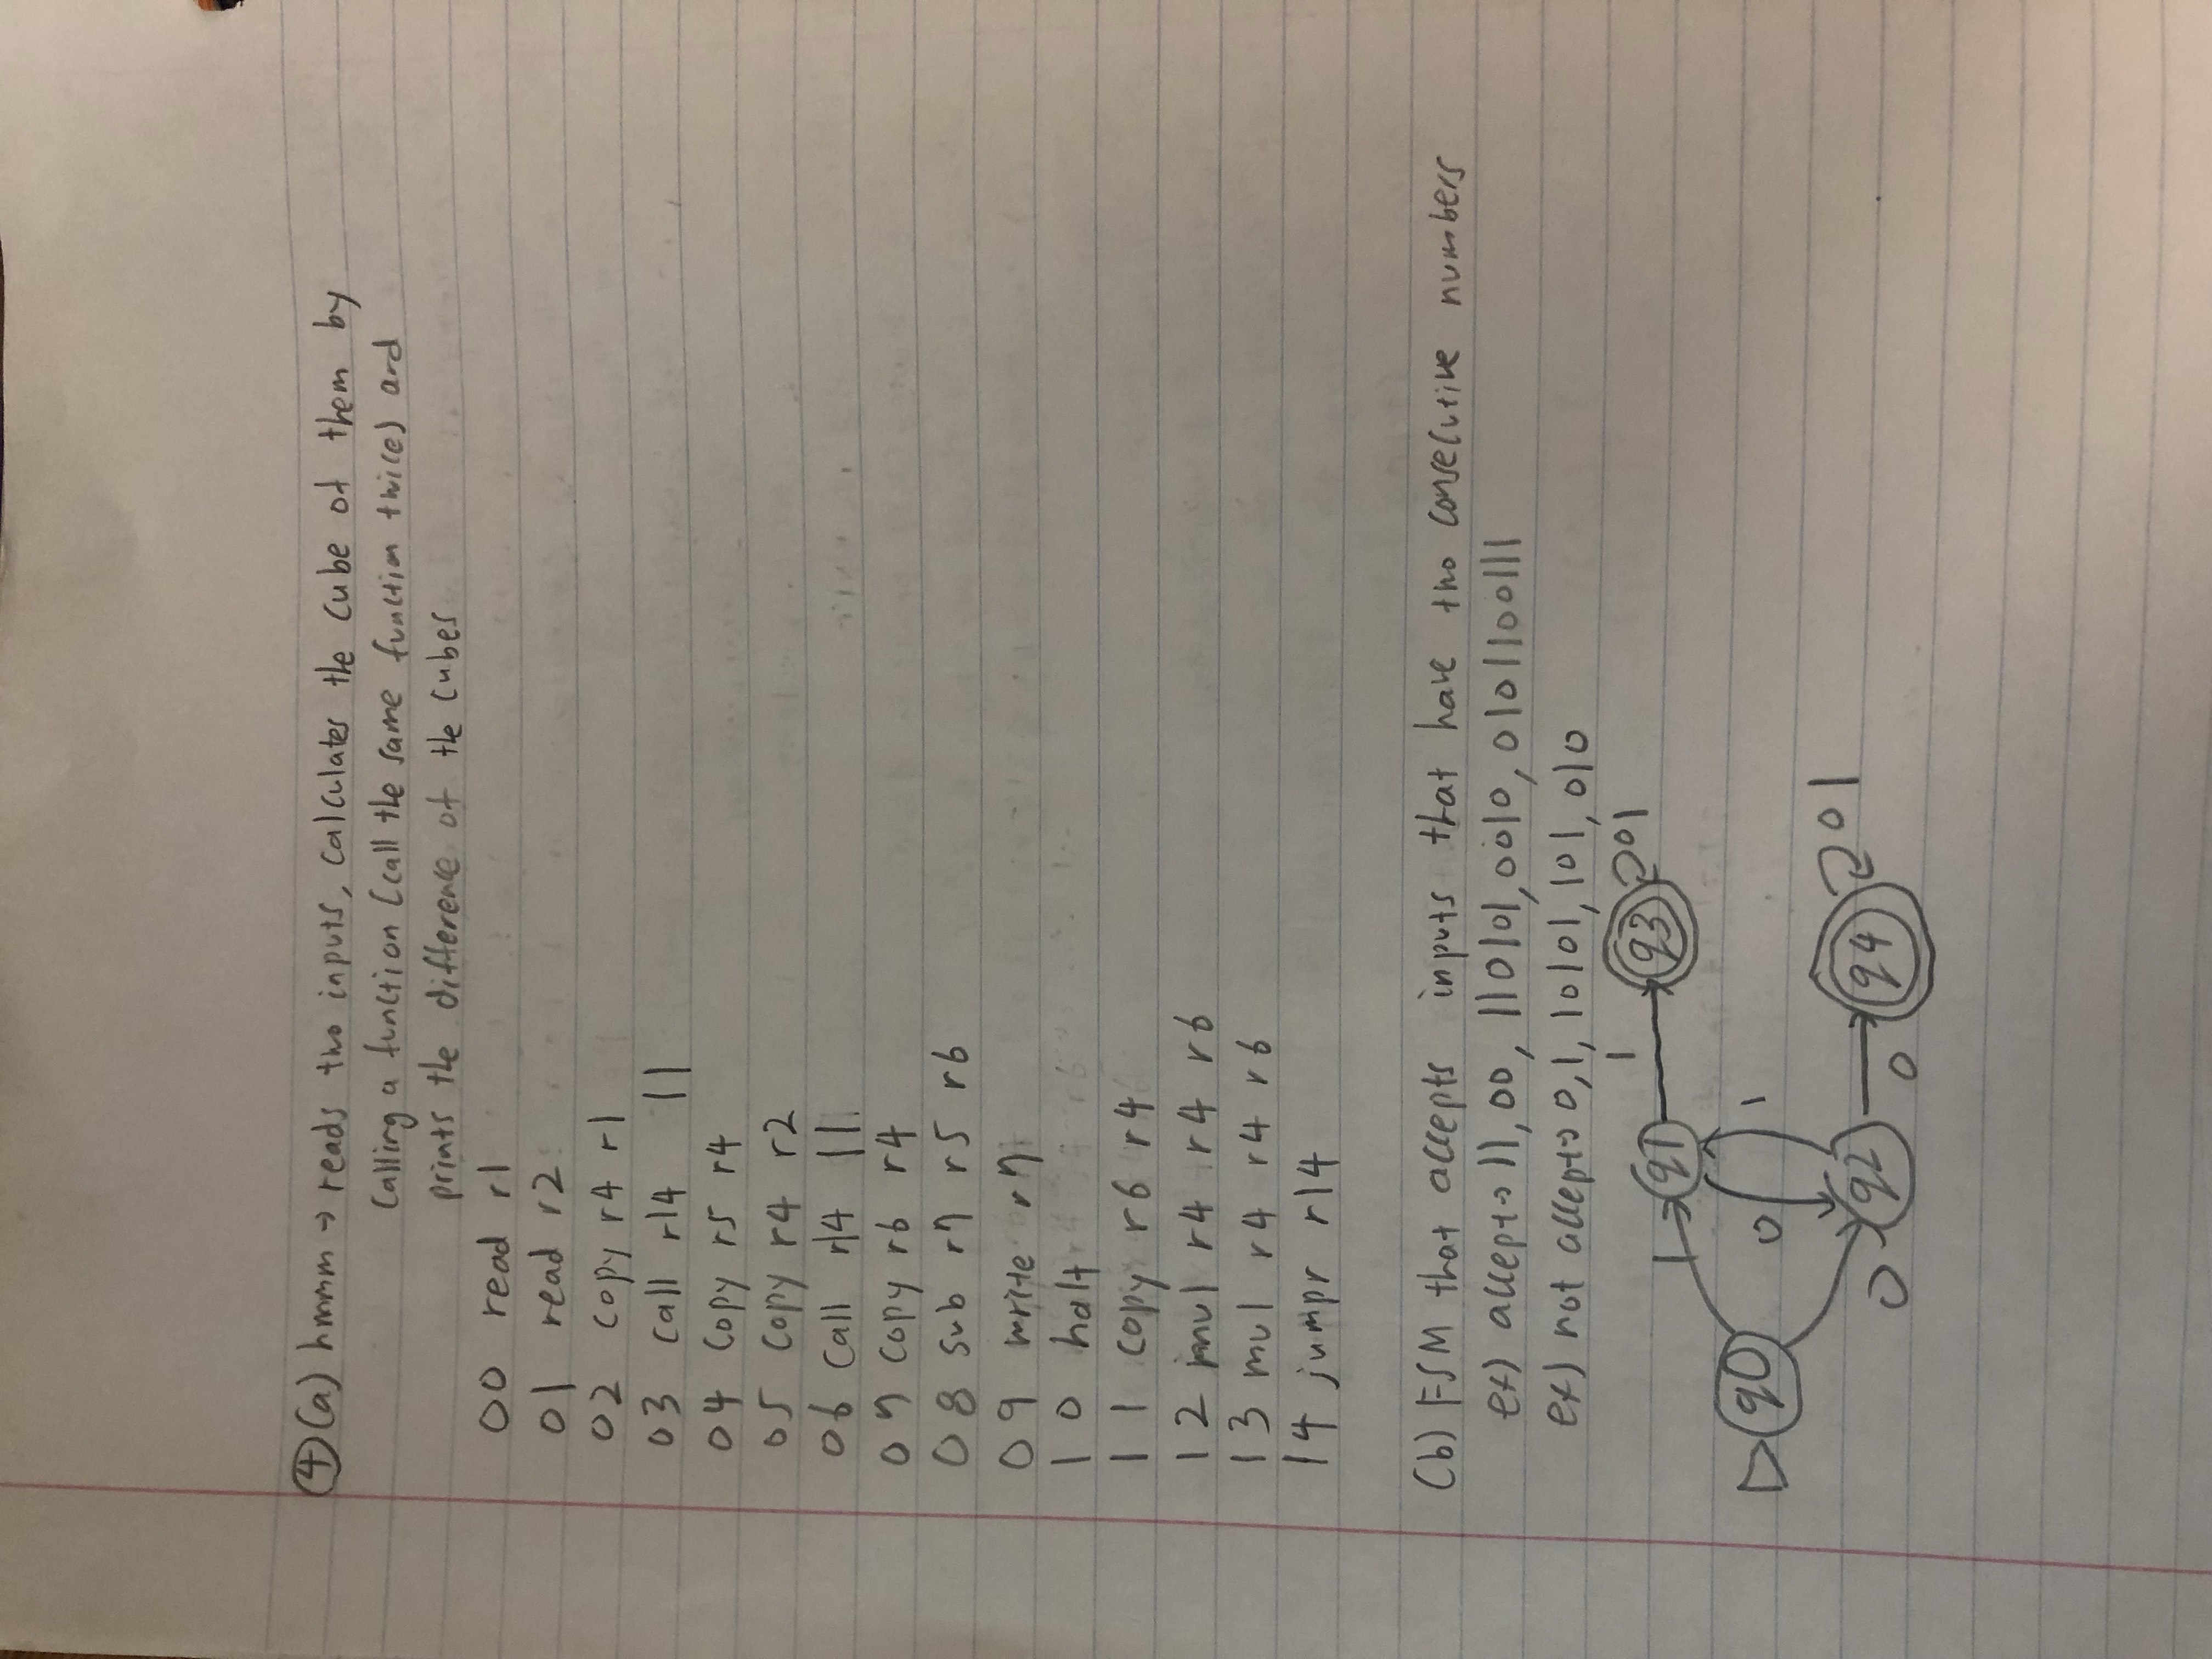 ④(a) hmmm → reads two inputs, calculates the cube of them by
calling a function (call the same function twice) and
prints the difference of the cubes
00 read r1
01 read r2
02 copy r4 r1
03 call r14 11
04 copy r5 r4
05 copy r4 r2
06 call r14 11
07 copy r6 r4
08 sub r7 r5 r6
09 write r7
10 halt
11 copy r6 r4
12 mul r4 r4 r6
13 mul r4 r4 r6
14 jumpr r14
(b) FSM that accepts inputs that have two consecutive numbers
ex) accept → 11, 00, 110101, 0010, 0101100111
ex) not accept → 0, 1, 10101, 101, 010
1
1 q1 q3 01
q0 0 1
0 q2 0 q4 01